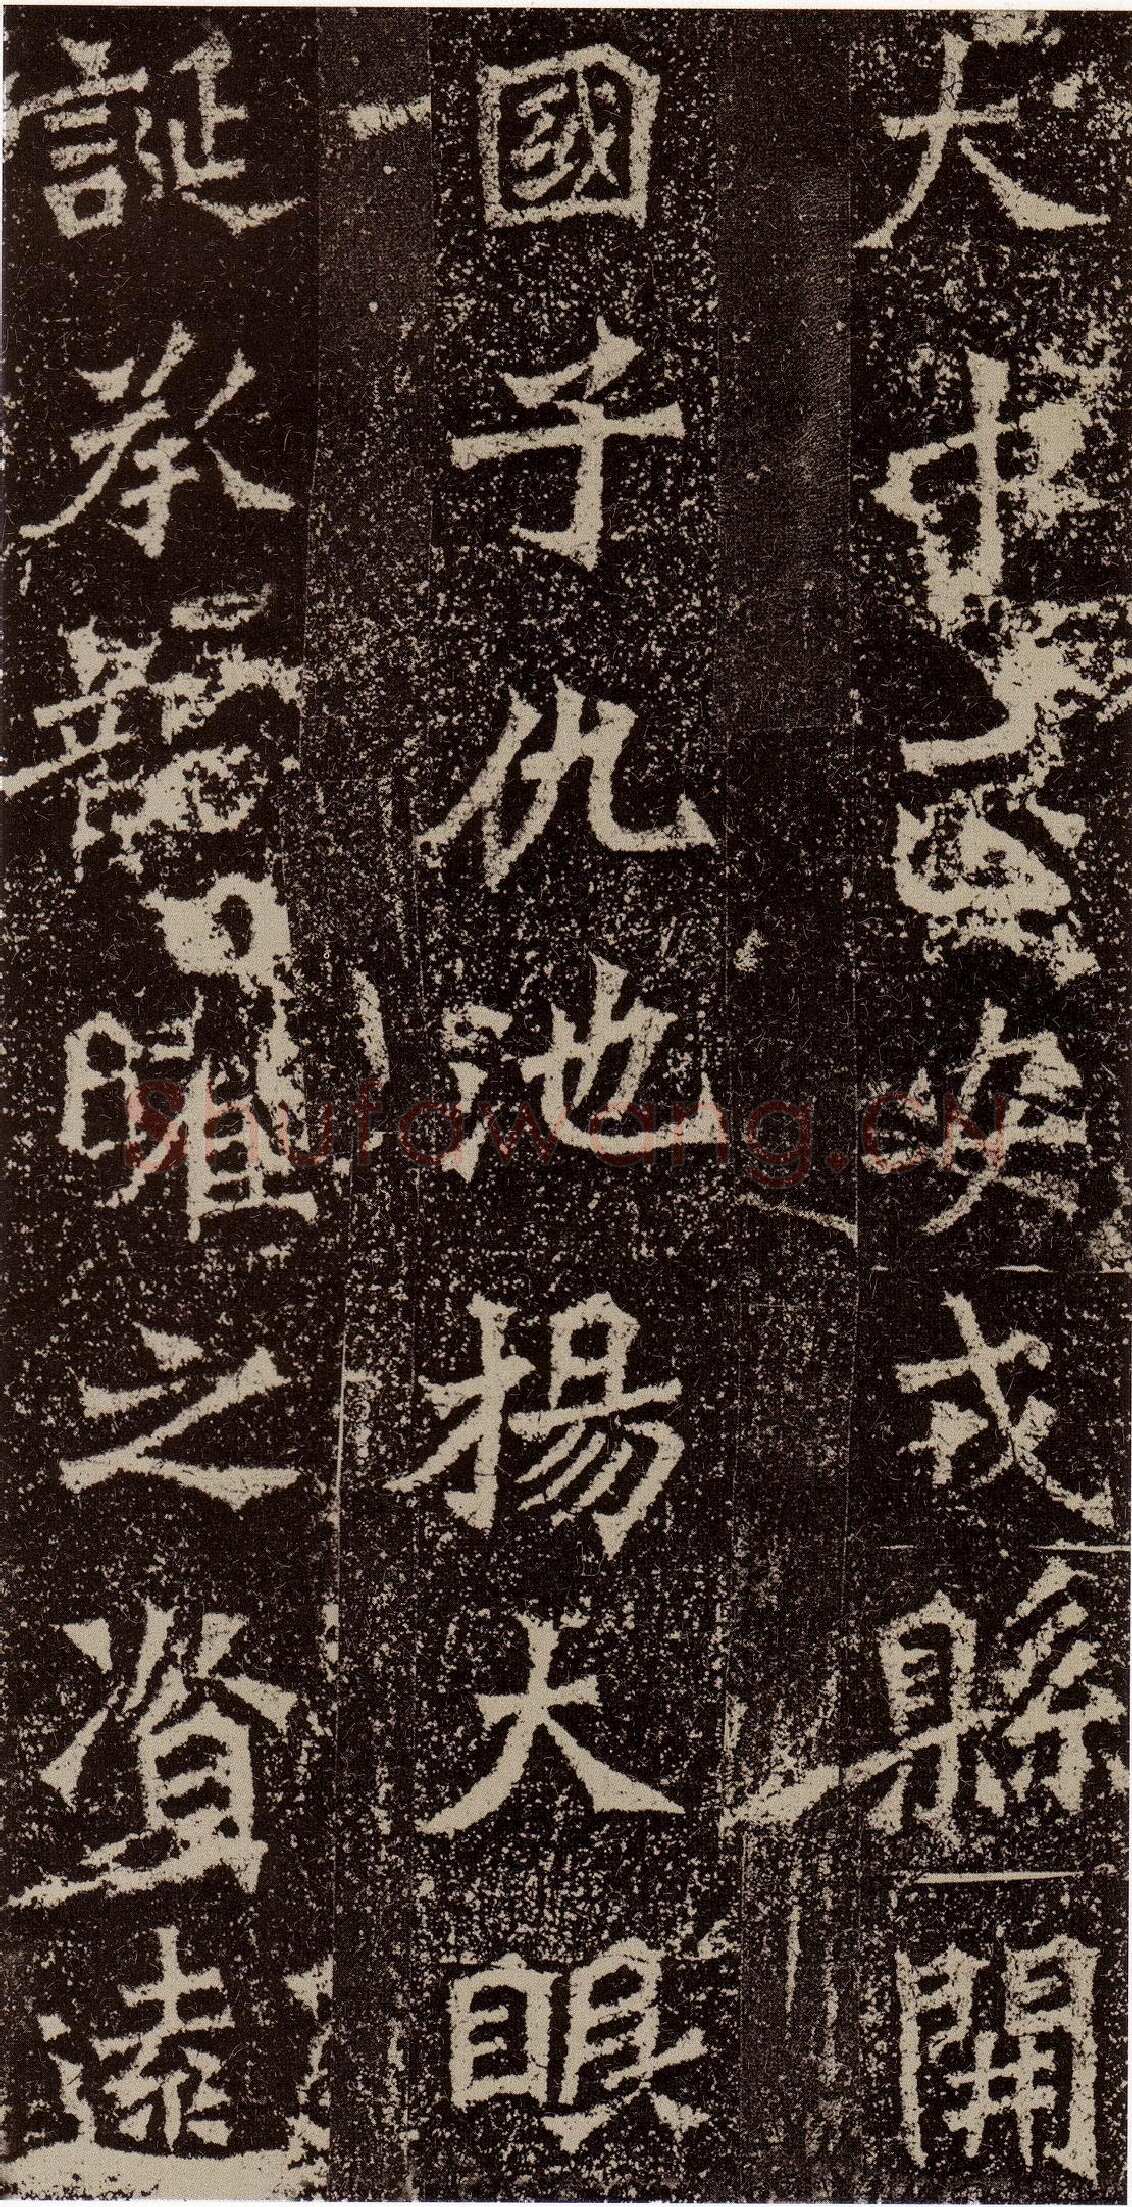 大中正安戎縣開
國子仇池揚大眼
誕承龍曜之資遠
Shufawang.CN